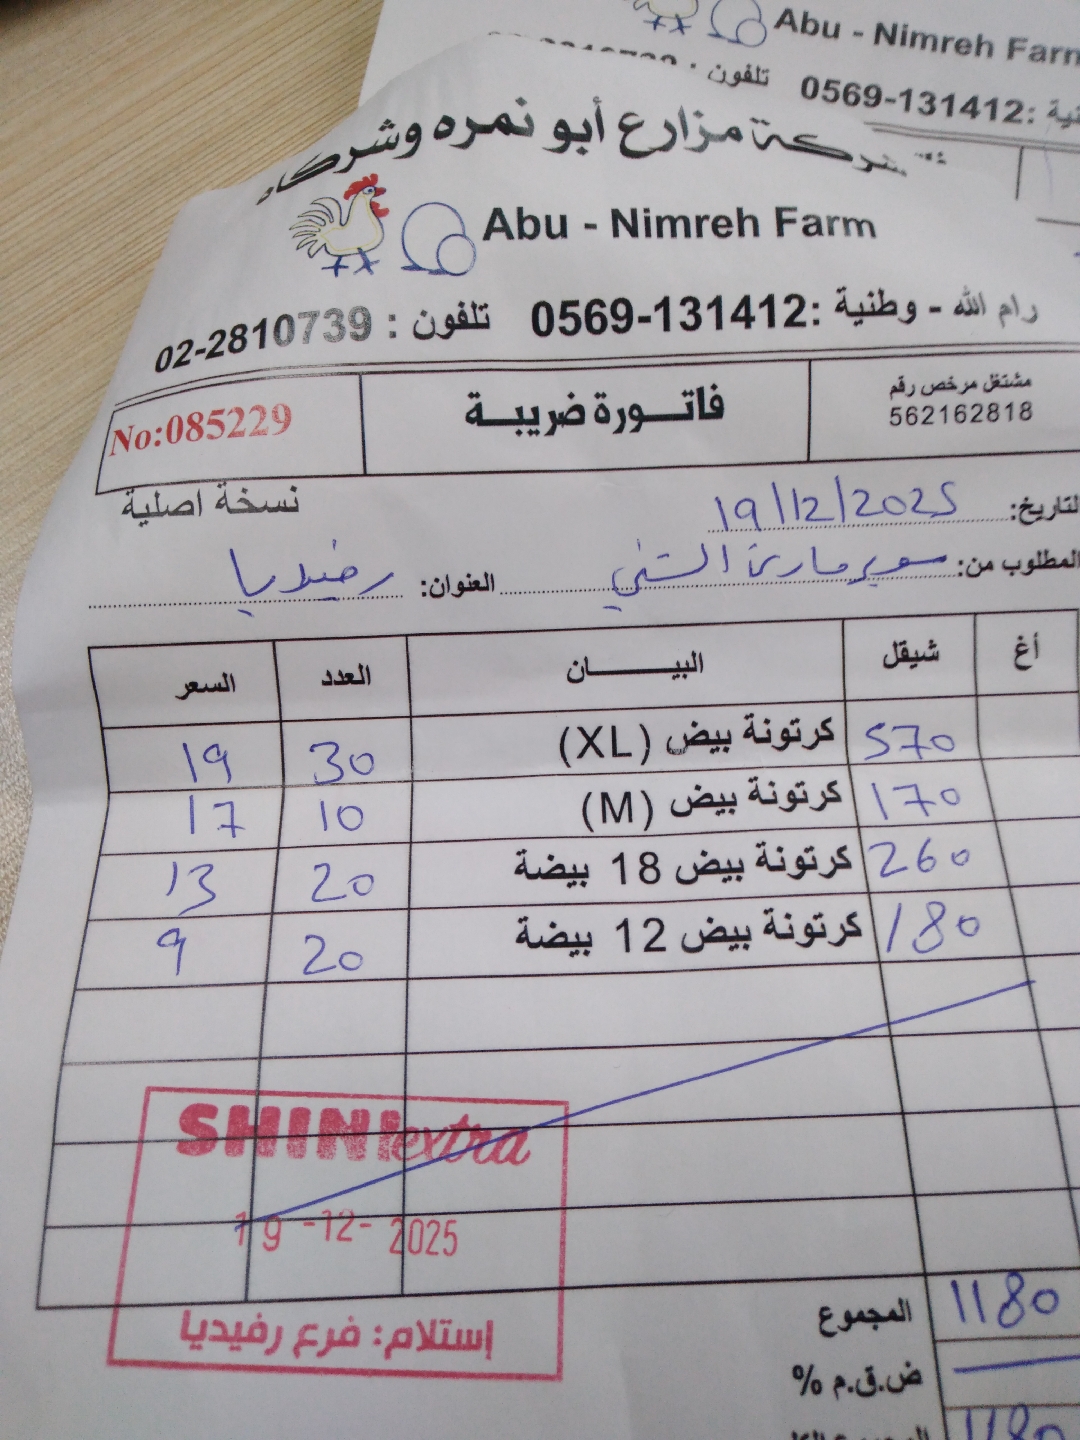 Abu - Nimreh Farm
تلفون :
0569-131412:
شركة مزارع أبو نمره وشركاه
Abu - Nimreh Farm
رام الله - وطنية :0569-131412 تلفون : 02-2810739
مشتغل مرخص رقم
562162818
فاتـــورة ضريبـــة
No:085229
نسخة اصلية
التاريخ: 19/12/2025
المطلوب من: سوبر ماركت الشني العنوان: رفيديا
أغ شيقل البيـــــــان العدد السعر
570 كرتونة بيض (XL) 30 19
170 كرتونة بيض (M) 10 17
260 كرتونة بيض 18 بيضة 20 13
180 كرتونة بيض 12 بيضة 20 9
SHINI extra
19 -12- 2025
إستلام: فرع رفيديا
المجموع 1180
ض.ق.م %
1180